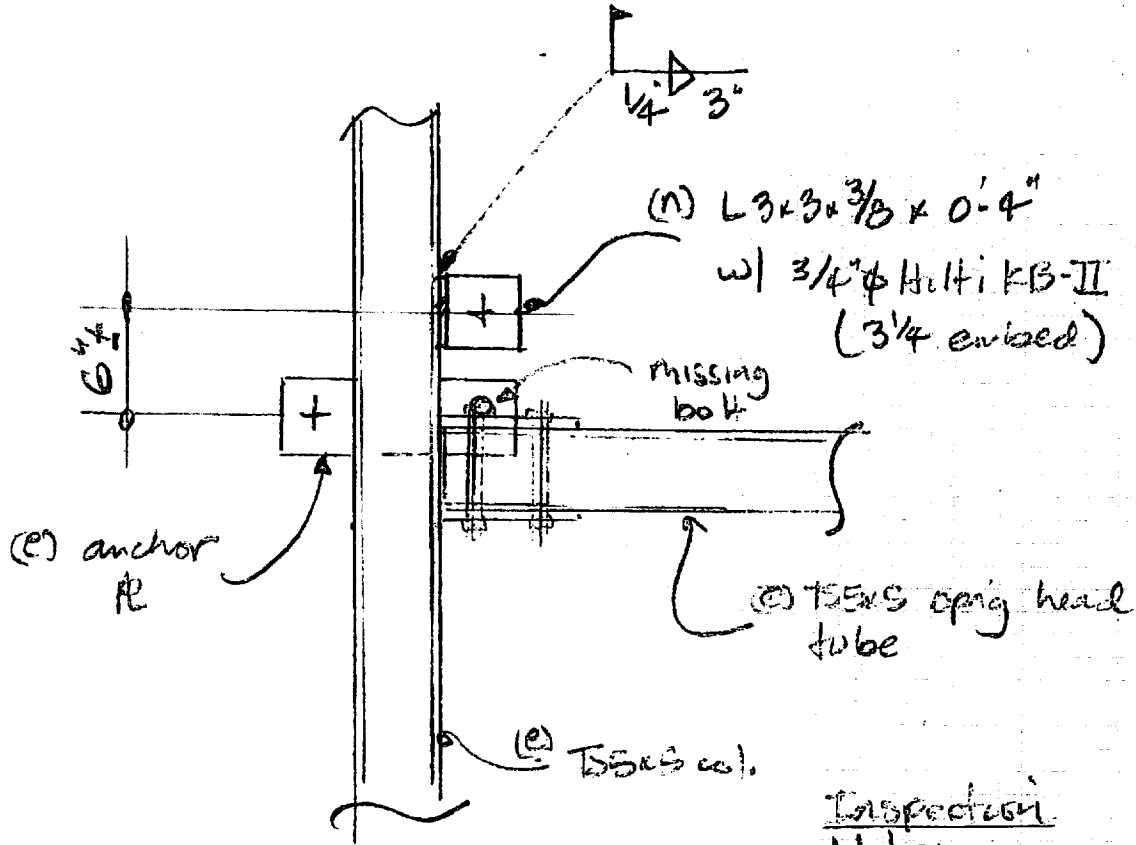 1/4" 3"
(n) L 3x3x3/8 x 0'-4"
w/ 3/4"φ Hilti KB-II
(3 1/4 embed)
6"±
missing
bolt
(e) anchor
PL
(e) TS5x5 op'g head
tube
(e) TS5x5 col.
Inspection